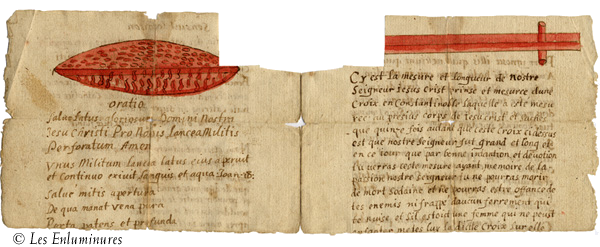 oratio
Salue Latus gloriosum Domini Nostri
Jesu Christi Pro Nobis Lancea Militis
Perforatum Amen
Vnus Militum Lancea latus eius aperuit
et Continuo exiuit Sanguis et aqua. Ioan
Salue mitis apertura
De qua manat vena pura
Porta patens et profunda
Cy est La mesure et Longueur de nostre
Seigneur Jesus Crist prinse et mesuree dune
Croix en Constantinoble Laquelle a este mesu
ree du pretieux corps de Jesucrist et
que quinze fois autant que ceste Croix cidessus
est que nostre Seigneur fut grand et long et
en ce jour que par bonne intention et deuotion
tu verras ceste mesure ayant memoire de La
passion nostre Seigneur tu ne pourras mourir
de mort Sodaine et ne pourras estre offance de
tes enemis ny frappe daucun ferrement qui
te nuise et Sil estoit une femme qui ne peust
enfanter mectes sur la dicte Croix sur elle
© Les Enluminures